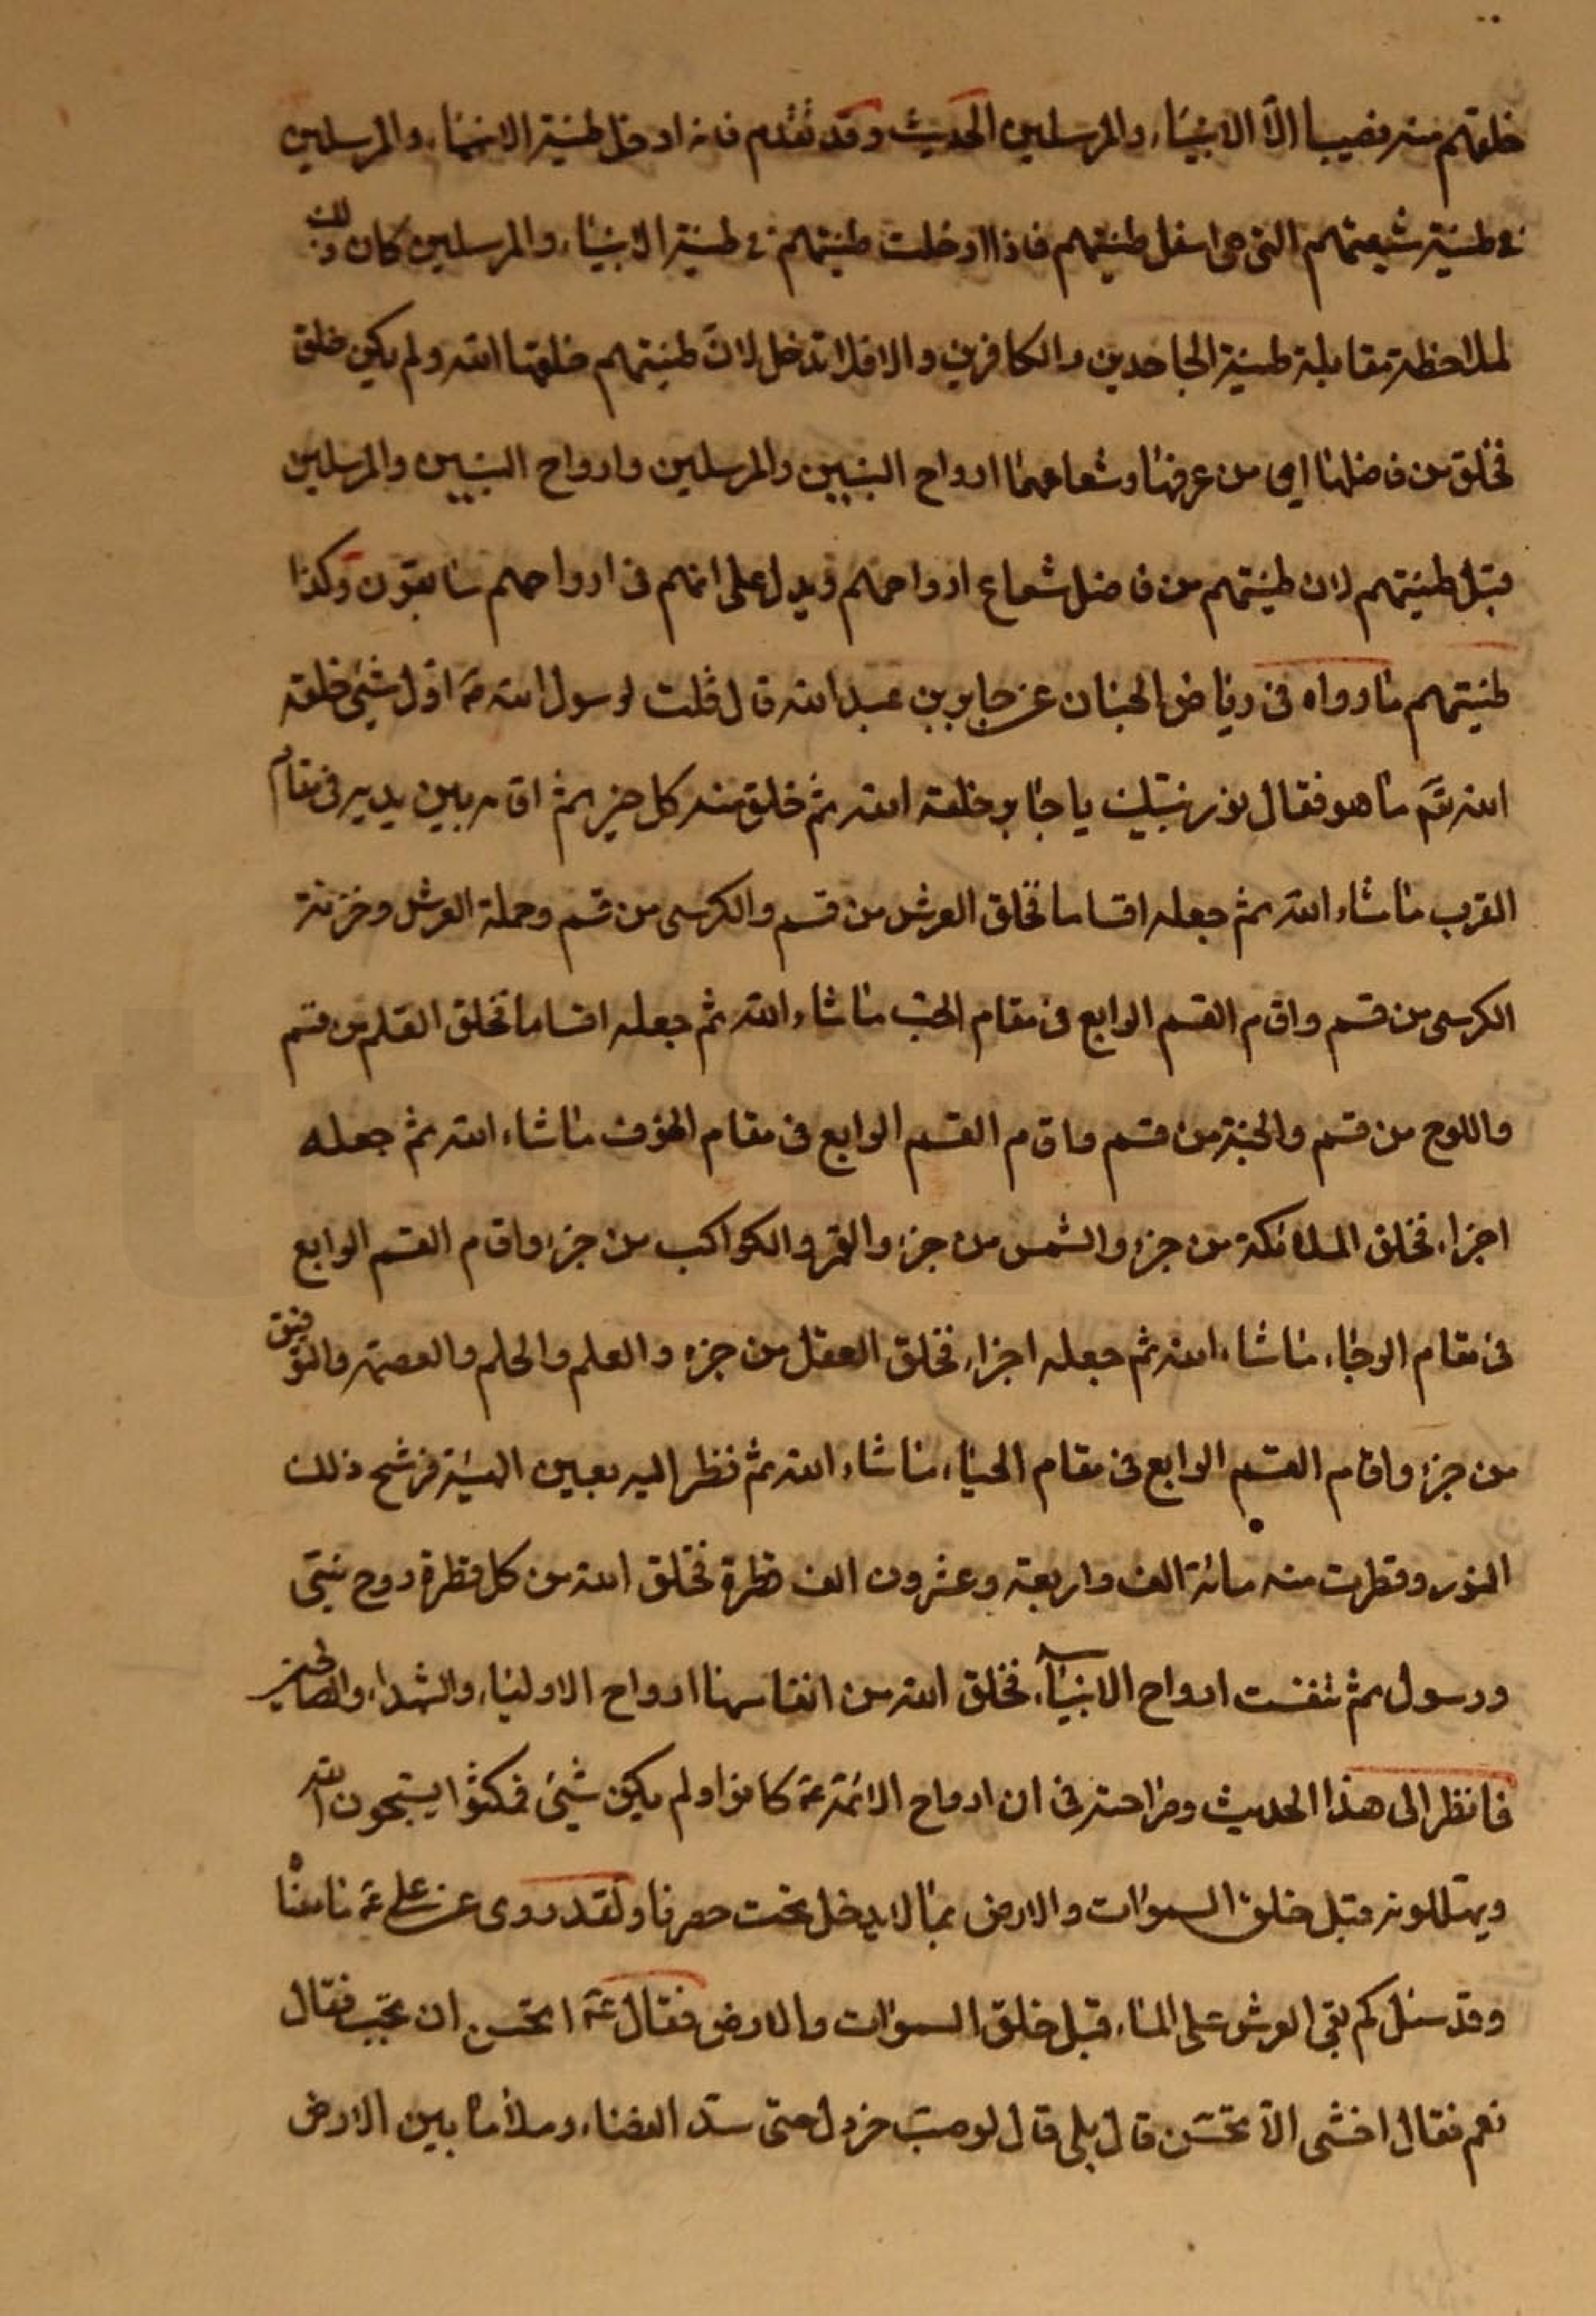 خلقهم منه نصيبا الّا الانبياء والمرسلين الحديث وقد تقدم فانه ادخل طينة الانبياء والمرسلين
في طينة شيعتهم التي هي اسفل طينتهم فاذا ادخلت طينتهم في طينة الانبياء والمرسلين كان ذلك
لملاحظة مقابلة طينة الجاحدين والكافرين والا فلا تدخل لانّ طينتهم خلقها الله ولم يكن خلق
فخلق من فاضلها اي من عرقها وشعاعها ارواح النبيين والمرسلين وارواح النبيين والمرسلين
قبل طينتهم لان طينتهم من فاضل شعاع ارواحهم ويدل على انهم في ارواحهم سابقون وكذا
طينتهم ما رواه في رياض الجنان عن جابر بن عبد الله قال قلت لرسول الله ص اوّل شيئ خلقه
الله تع ما هو فقال نور نبيّك يا جابر خلقه الله ثم خلق منه كل خير ثم اقامه بين يديه في مقام
القرب ما شاء الله ثم جعله اقساما فخلق العرش من قسم والكرسى من قسم وحملة العرش وخزنة
الكرسى من قسم واقام القسم الرابع في مقام الحبّ ما شاء الله ثم جعله اقساما فخلق القلم من قسم
واللوح من قسم والجنة من قسم واقام القسم الرابع في مقام الخوف ما شاء الله ثم جعله
اجزاء فخلق الملائكة من جزء والشمس من جزء والقمر والكواكب من جزء واقام القسم الرابع
في مقام الرجاء ما شاء الله ثم جعله اجزاء فخلق العقل من جزء والعلم والحلم والعصمة والتوفيق
من جزء واقام القسم الرابع في مقام الحياء ما شاء الله ثم نظر اليه بعين الهيبة فرشح ذلك
النور وقطرت منه مائة الف واربعة وعشرون الف قطرة فخلق الله من كل قطرة روح نبيّ
ورسول ثم تنفست ارواح الانبياء فخلق الله من انفاسها ارواح الاولياء والشهداء والصالحين
فانظر الى هذا الحديث وصراحته في ان ارواح الائمة ع كانوا ولم يكن شيئ فمكثوا يسبحون الله
ويهللونه قبل خلق السموات والارض بما لا يدخل تحت حصرنا ولقد روى عن علي ع ما معناه
وقد سئل كم بقى العرش على الماء قبل خلق السموات والارض فقال ع اتحسن ان تحسب فقال
نعم فقال اخشى الّا تحسن قال بلى قال لو صبّ خردل حتى سدّ الفضاء وملأ ما بين الارض